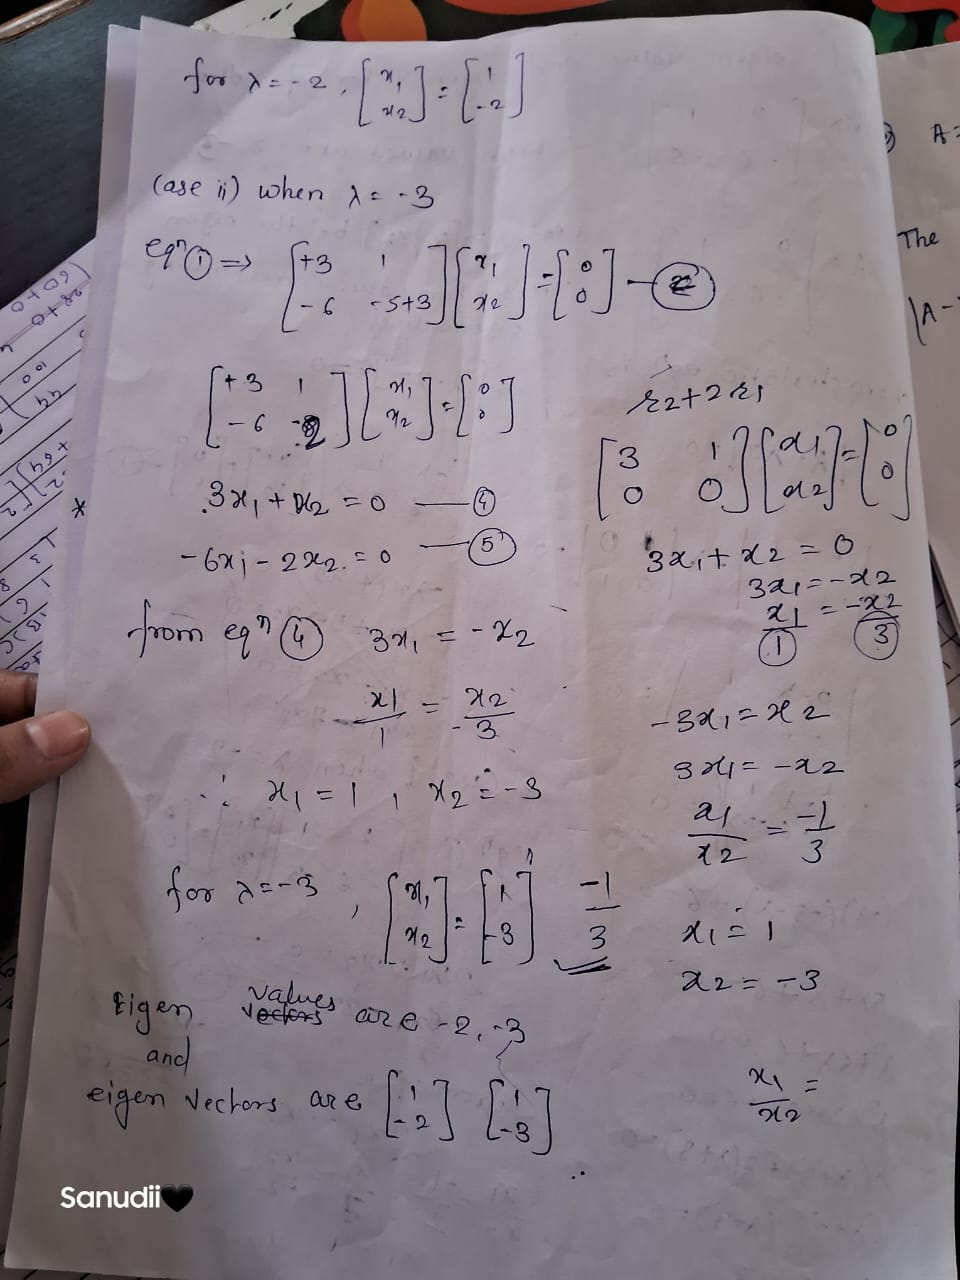 for λ = -2, [x₁ x₂] = [1 -2]
(ase ii) when λ = -3
eqⁿ ① ⇒ [+3 1 -6 -5+3] [x₁ x₂] = [0 0] —
[+3 1 -6 -2] [x₁ x₂] = [0 0]
3x₁ + x₂ = 0 — ④
-6x₁ - 2x₂ = 0 — ⑤
from eqⁿ ④ 3x₁ = -x₂
x1/1 = x2/-3
∴ x₁ = 1, x₂ = -3
for λ = -3, [x₁ x₂] = [1 -3]
-1/3
Eigen values are -2, -3
and
eigen vectors are [1 -2] [1 -3]
r2+2r1
[3 1 0 0] [x1 x2] = [0 0]
3x1 + x2 = 0
3x1 = -x2
x1/1 = -x2/3
-3x1 = x2
3x1 = -x2
x1/x2 = -1/3
x1 = 1
x2 = -3
x1/x2 =
*
A=
The
|A-
Sanudii🖤